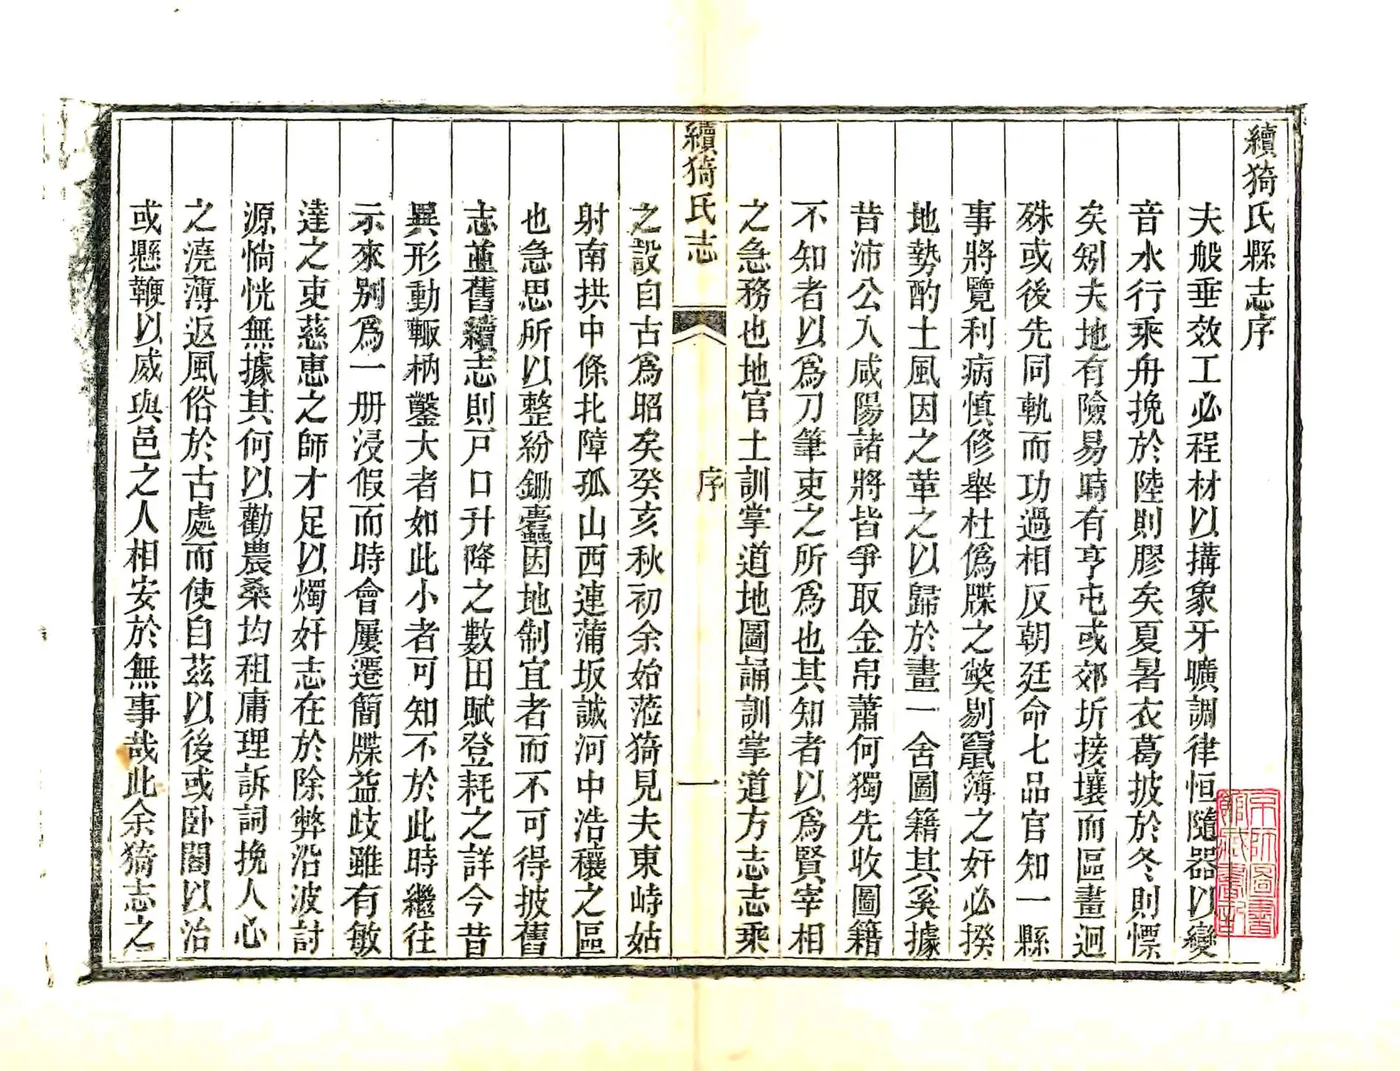 續猗氏縣志序
夫般垂效工必程材以搆象牙曠調律恒隨器以變
音水行乘舟挽於陸則膠矣夏暑衣葛披於冬則慓
矣矧夫地有險易時有亨屯或郊圻接壤而區畫迥
殊或後先同軌而功過相反朝廷命七品官知一縣
事將覽利病慎修舉杜僞牒之獘剔竄簿之奸必揆
地勢酌土風因之革之以歸於畫一舍圖籍其奚據
昔沛公入咸陽諸將皆爭取金帛蕭何獨先收圖籍
不知者以爲刀筆吏之所爲也其知者以爲賢宰相
之急務也地官土訓掌道地圖誦訓掌道方志志乘
續猗氏志
序
一
之設自古爲昭矣癸亥秋初余始蒞猗見夫東峙姑
射南拱中條北障孤山西連蒲坂誠河中浩穰之區
也急思所以整紛鋤蠹因地制宜者而不可得披舊
志並舊續志則戸口升降之數田賦登耗之詳今昔
異形動輙枘鑿大者如此小者可知不於此時繼往
示來别爲一册浸假而時會屢遷簡牒益歧雖有敏
達之吏慈惠之師才足以燭奸志在於除弊沿波討
源惝恍無據其何以勸農桑均租庸理訴詞挽人心
之澆薄返風俗於古處而使自茲以後或卧閣以治
或懸鞭以威與邑之人相安於無事哉此余猗志之